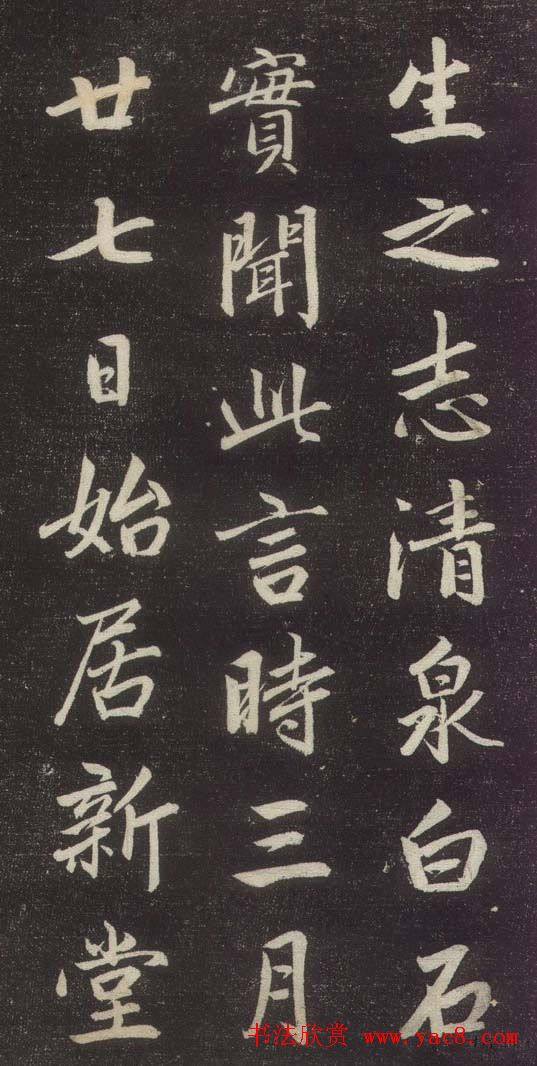 生之志清泉白石
實聞此言時三月
廿七日始居新堂
书法欣赏 www.yac8.com